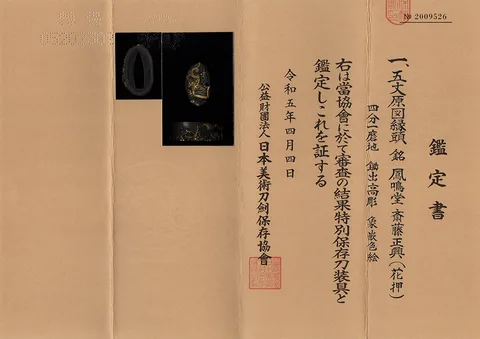 № 2009526
鑑定書
一、五丈原図縁頭 銘 鳳鳴堂 斎藤正興(花押)
四分一磨地 鋤出高彫 象嵌色絵
右は當協會に於て審査の結果特別保存刀装具と
鑑定しこれを証する
令和五年四月四日
公益財團法人 日本美術刀劍保存協會